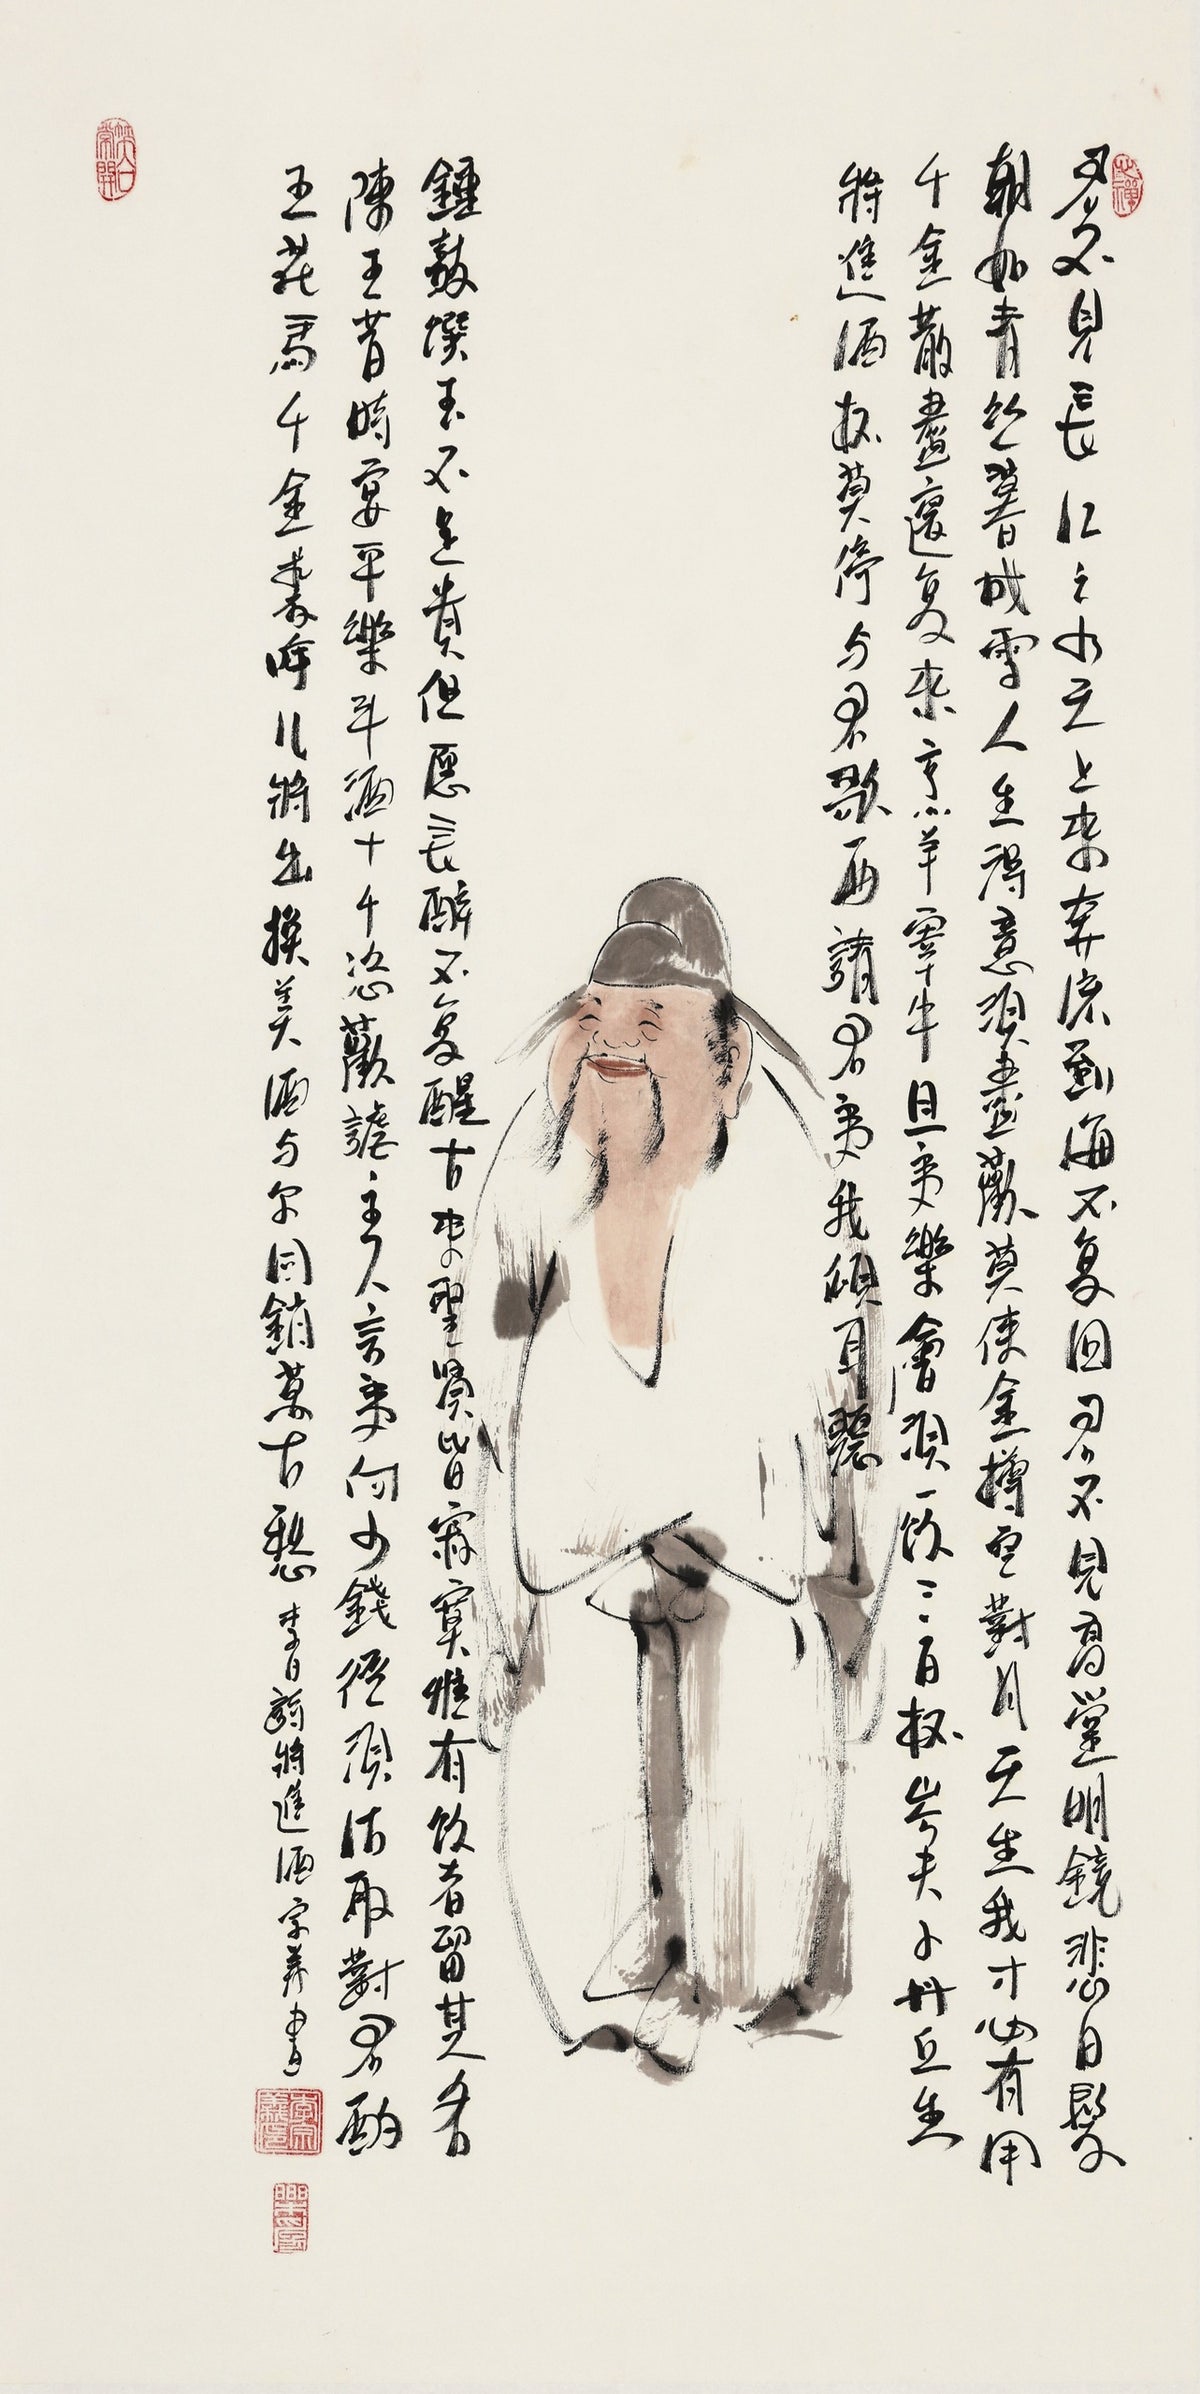 君不見長江之水天上来奔流到海不复回君不見高堂明鏡悲白髮
朝如青丝暮成雪人生得意須盡歡莫使金樽空對月天生我才必有用
千金散盡還复来烹羊宰牛且為樂會須一饮三百杯岑夫子丹丘生
將進酒杯莫停与君歌一曲請君為我傾耳聽
鐘鼓馔玉不足貴但愿長醉不复醒古来聖賢皆寂寞惟有饮者留其名
陳王昔時宴平樂斗酒十千恣歡謔主人言為何少錢徑須沽取對君酌
五花馬千金裘呼儿將出換美酒与尔同銷萬古愁 李白詩將進酒 宗義書
李宗義印
笑口常開